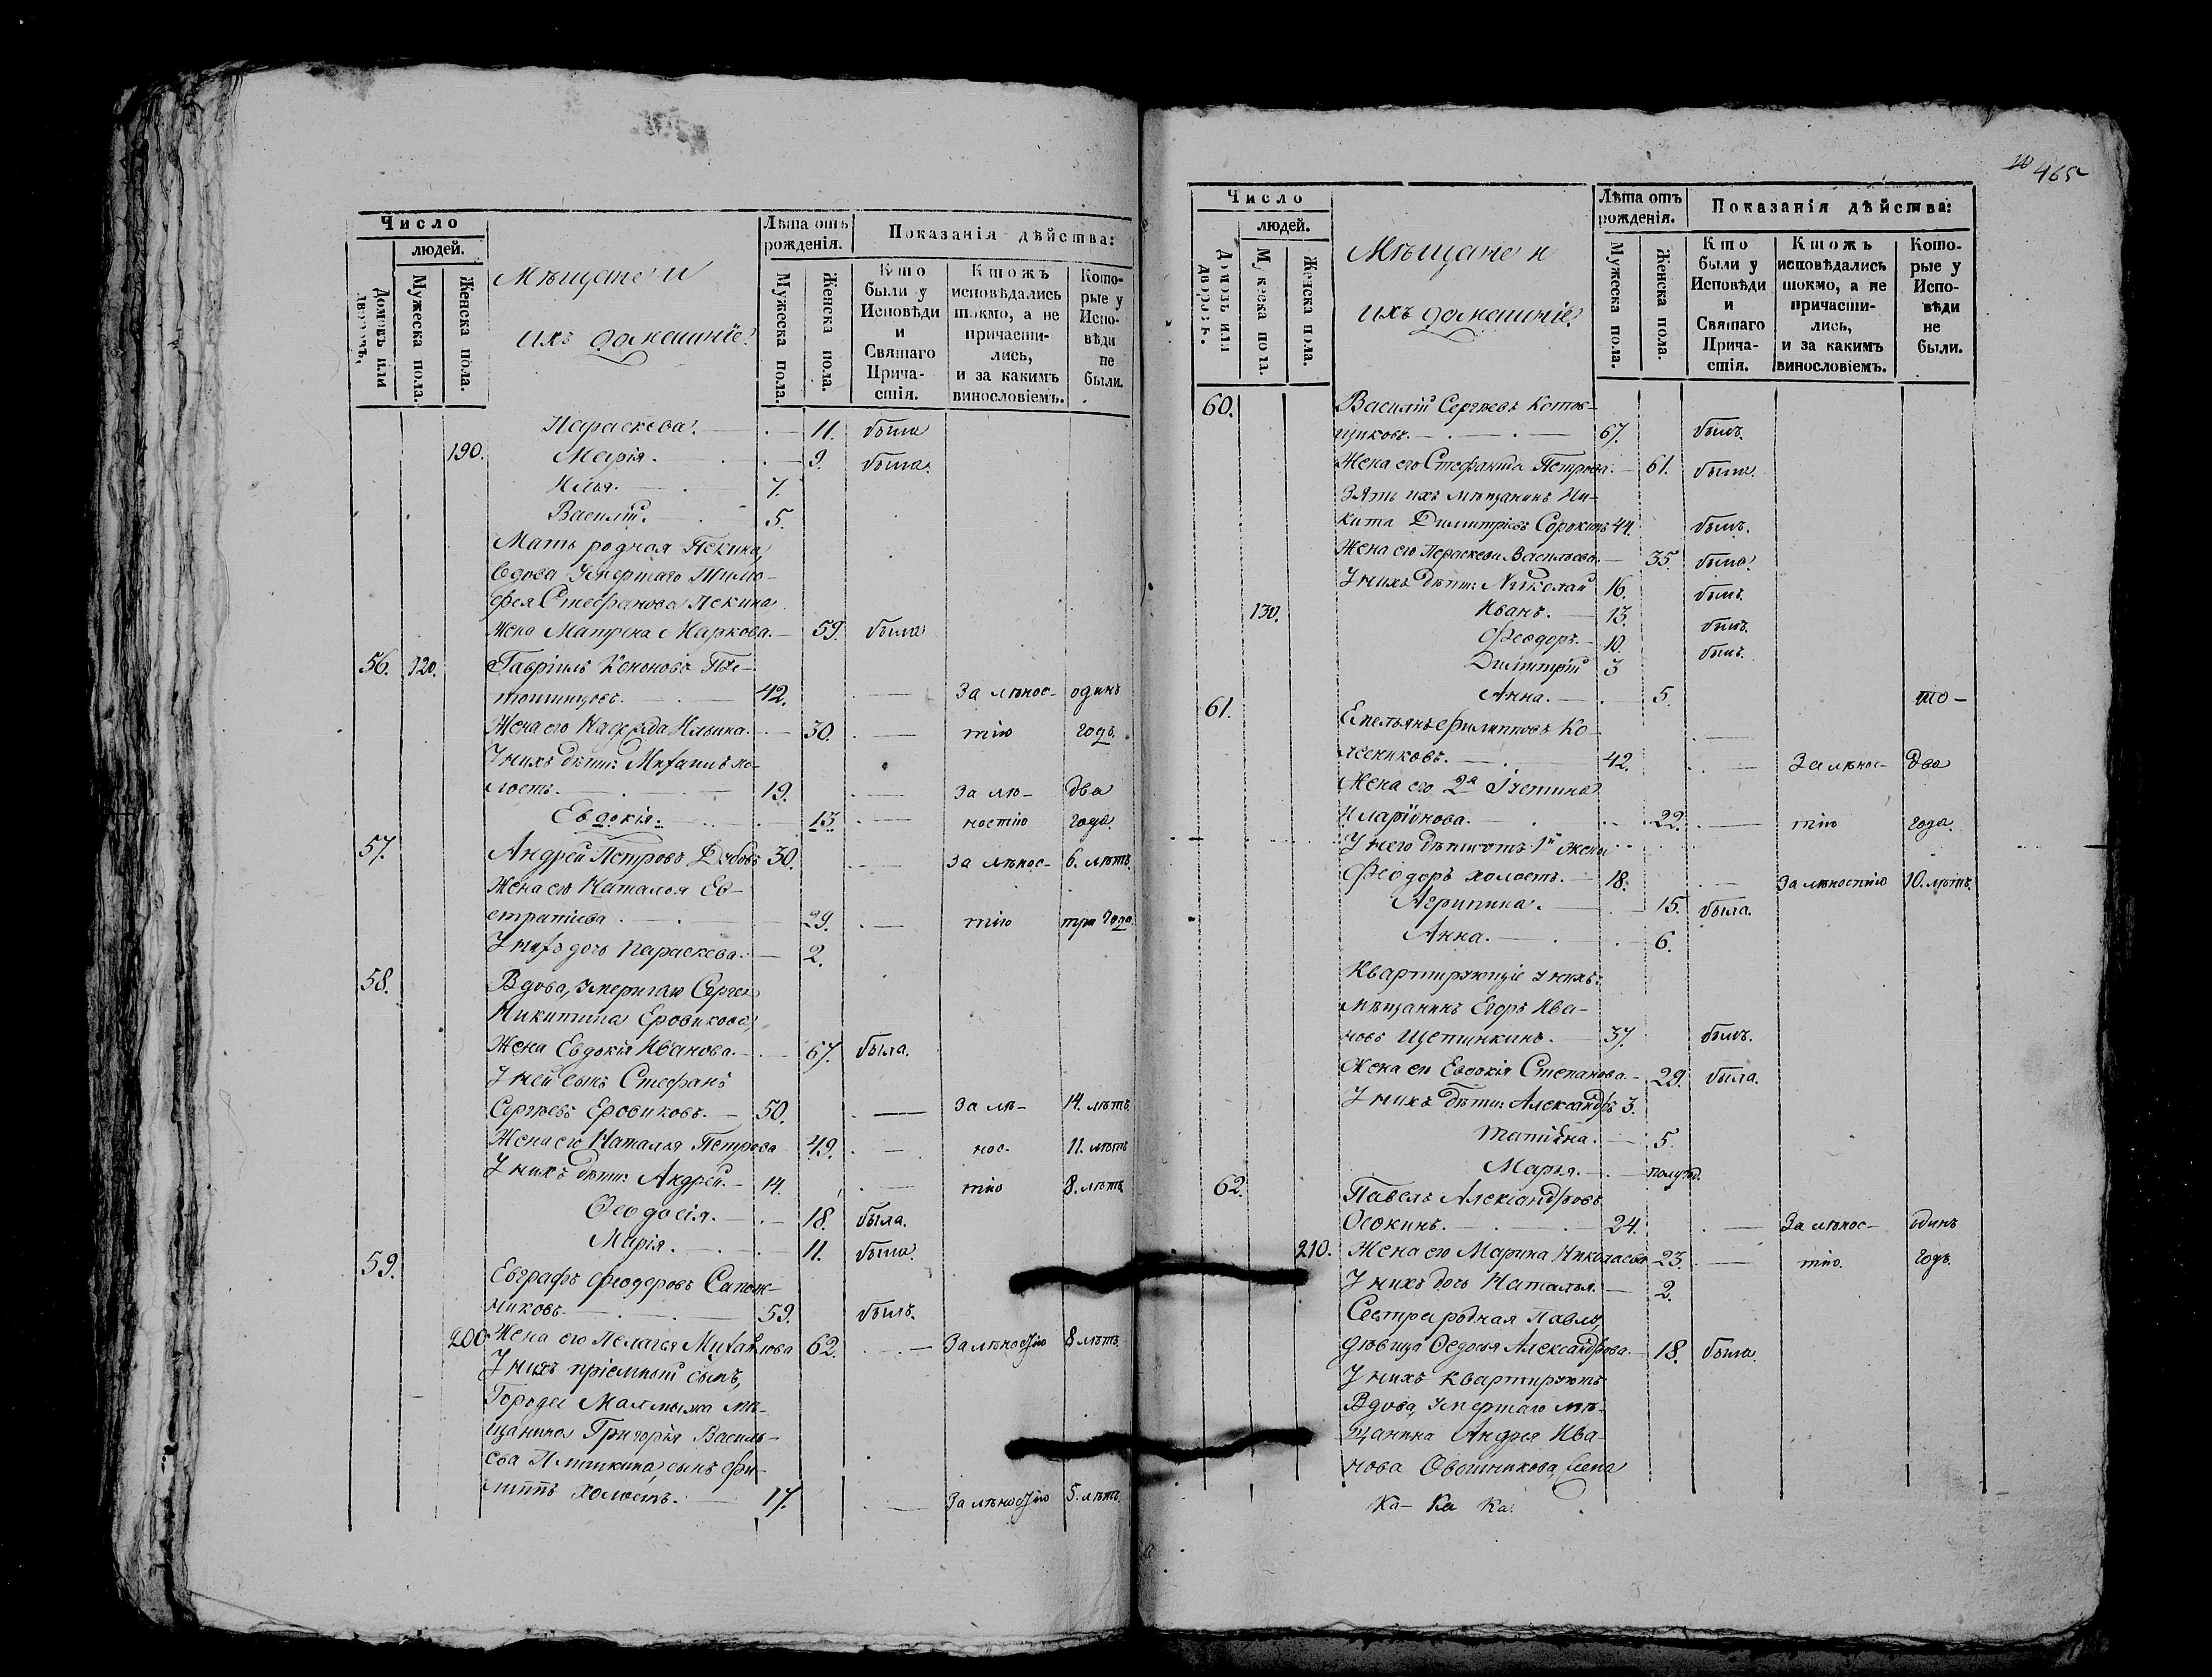 Число
людей.
Домовъ или дворовъ.
Мужеска пола.
Женска пола.
Мѣщане и
ихъ домашнiе.
Лѣта отъ рожденiя.
Мужеска пола.
Женска пола.
Показанiя дѣйства:
Кто были у Исповѣди и Святаго Причастiя.
Ктожъ исповѣдались токмо, а не причастились, и за какимъ винословiемъ.
Которые у Исповѣди не были.
Параскева. 11. была
190. Марiя. 9. была.
Илья. 7.
Василiй. 5.
Мать родная
вдова умершаго Тимо-
фея Стефанова
жена Матрена Маркова. 59. была
56. 120. Гаврiилъ Кононовъ
42. За лѣнос- одинъ
Жена его Надежда Ильина. 30. тiю годъ.
У нихъ дѣти: Михаилъ хо-
лостъ. 19. За лѣ- два
Евдокiя. 13. ностiю года.
57. Андрей Петровъ 30. За лѣнос- 6. лѣтъ.
Жена его Наталья Ев-
стратiева 29. тiю три года.
У нихъ дочь Параскева. 2.
58. Вдова, умершаго Сергея
Никитина Еровикова,
Жена Евдокiя Иванова. 67. была.
У ней сынъ Стефанъ
Сергѣевъ Еровиковъ. 50. За лѣ- 14. лѣтъ.
Жена его Наталья Петрова 49. нос- 11. лѣтъ
У нихъ дѣти: Андрей. 14. тiю 8. лѣтъ
Ѳеодосiя. 18. была.
Марiя. 11. была.
59. Евграфъ Феодоровъ Сапож-
никовъ. 59. былъ.
200. Жена его Пелагья Михайлова 62. За лѣностiю 8 лѣтъ.
У нихъ прiемный сынъ,
Города Малмыжа мѣ-
щанина Григорiя Василь-
ева сынъ Фи-
липпъ холостъ. 17. За лѣностiю 5. лѣтъ.
465
Число
людей.
Домовъ или дворовъ.
Мужеска пола.
Женска пола.
Мѣщане и
ихъ домашнiе.
Лѣта отъ рожденiя.
Мужеска пола.
Женска пола.
Показанiя дѣйства:
Кто были у Исповѣди и Святаго Причастiя.
Ктожъ исповѣдались токмо, а не причастились, и за какимъ винословiемъ.
Которые у Исповѣди не были.
60. Василiй Сергѣевъ Котов-
щиковъ. 67. былъ.
Жена его Стефанида Петрова. 61. была.
Зять ихъ мѣщанинъ Ни-
кита Димитрiевъ Сорокинъ 44. былъ.
Жена его Параскева Васильева. 35. была.
У нихъ дѣти: Николай 16. былъ.
130. Иванъ. 13. былъ.
Феодоръ. 10. былъ.
Димитрiй 3
Анна. 5.
61. Емельянъ Филипповъ Ко-
лесниковъ. 42. За лѣнос- два
Жена его 2я Устинья
Иларiонова. 22. тiю года.
У него дѣти отъ 1й жены
Феодоръ холостъ. 18. За лѣностiю 10. лѣтъ.
Агрипина. 15. была.
Анна. 6.
Квартирующiе у нихъ:
мѣщанинъ Егоръ Ива-
новъ Щетинкинъ. 37. былъ.
Жена его Евдокiя Степанова. 29. была.
У нихъ дѣти: Александръ 3.
Татiяна. 5.
Марья. полугод.
62. Павелъ Александровъ
Осокинъ. 24. За лѣнос- одинъ
210. Жена его Марина Николаева 23. тiю. годъ.
У нихъ дочь Наталья. 2.
Сестра родная Павлу,
дѣвица Ѳедосья Александрова. 18. была.
У нихъ квартируютъ
Вдова, умершаго мѣ-
щанина Андрея Ива-
нова Овчинникова,